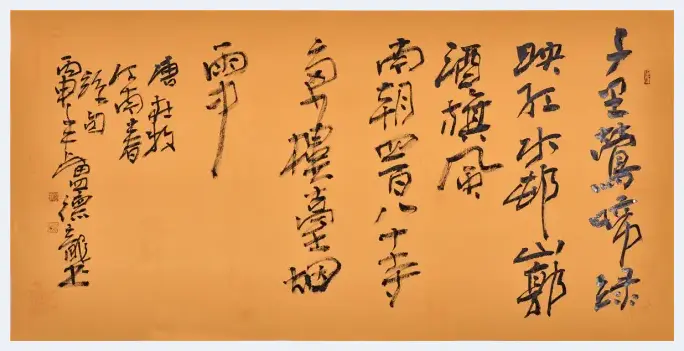 千里鶯啼绿
映红水邨山郭
酒旗風
南朝四百八十寺
多少樓臺烟
雨中
唐杜牧
江南春
詩句
丙申德龍书